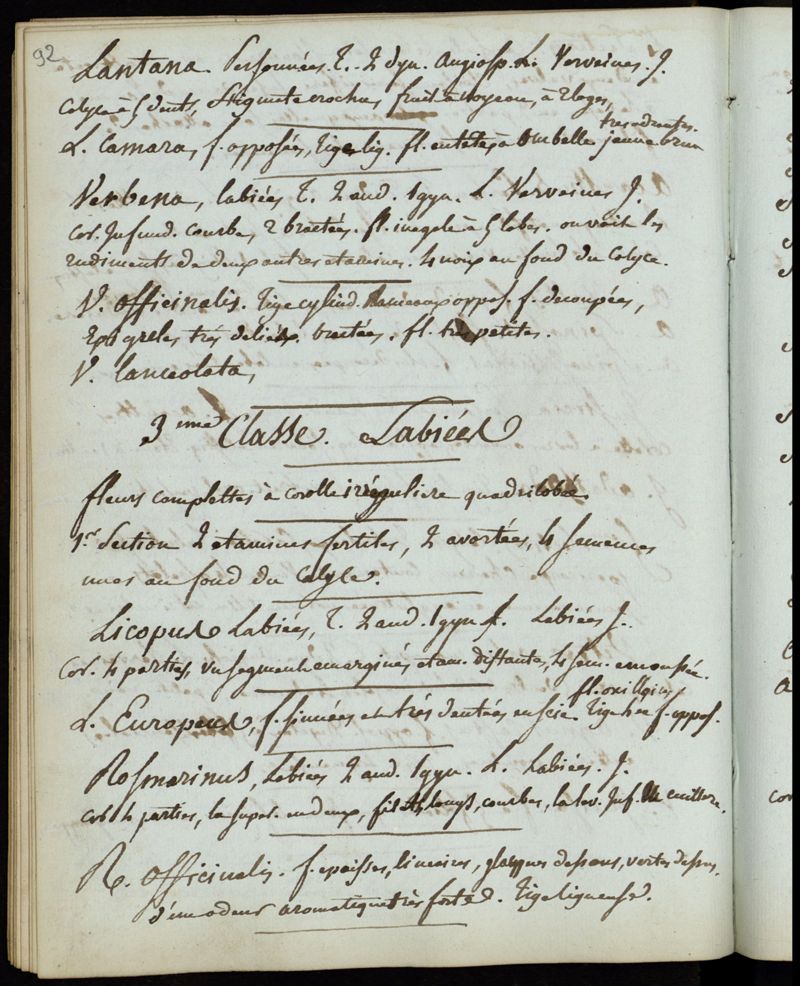 92
Lantana. Personnées. T. 2 dyn. Angiosp. L. Verveines. J.
Calyce à 5 dents, Stigmate crochu, fruit à noyeau, à 2 loges,
tres odorantes.
L. Camara, f. opposées, tige lig. fl. en tetes à Ombelle jaune brun
Verbena, labiées T. 2 and. 1 gyn. L. Verveines J.
Cor. Infund. courbe, 2 bractées. fl. inegale à 5 lobes. on voit les
rudiments de deux autres etamines. 4 noix au fond du Calyce.
V. officinalis. tige cylind. Rameaux oppos. f. decoupées,
Epis greles très deliés, bractées. fl. très petites.
V. lanceolata,
3me Classe. Labiées
fleurs complettes à corolle irréguliere quadrilobée
1re Section 2 etamines fertiles, 2 avortées, 4 semences
nues au fond du Calyce.
Licopus Labiées, T. 2 and. 1 gyn. L. Labiées J.
Cor. 4 parties, un segment emarginé, etam. distantes, 4 sem. emoussée.
fl. axillaires
L. Europeus, f. sinuées et très dentées en scie. Tige f. oppos.
Rosmarinus, Labiées 2 and. 1 gyn. L. Labiées. J.
Cor. 4 parties, la super. en deux, filets longs, courbes, la lev. Inf. cuillere.
R. officinalis. f. epaisses, lineaires, glauques dessous, vertes dessus,
d'une odeur aromatique très forte. Tige ligneuse.